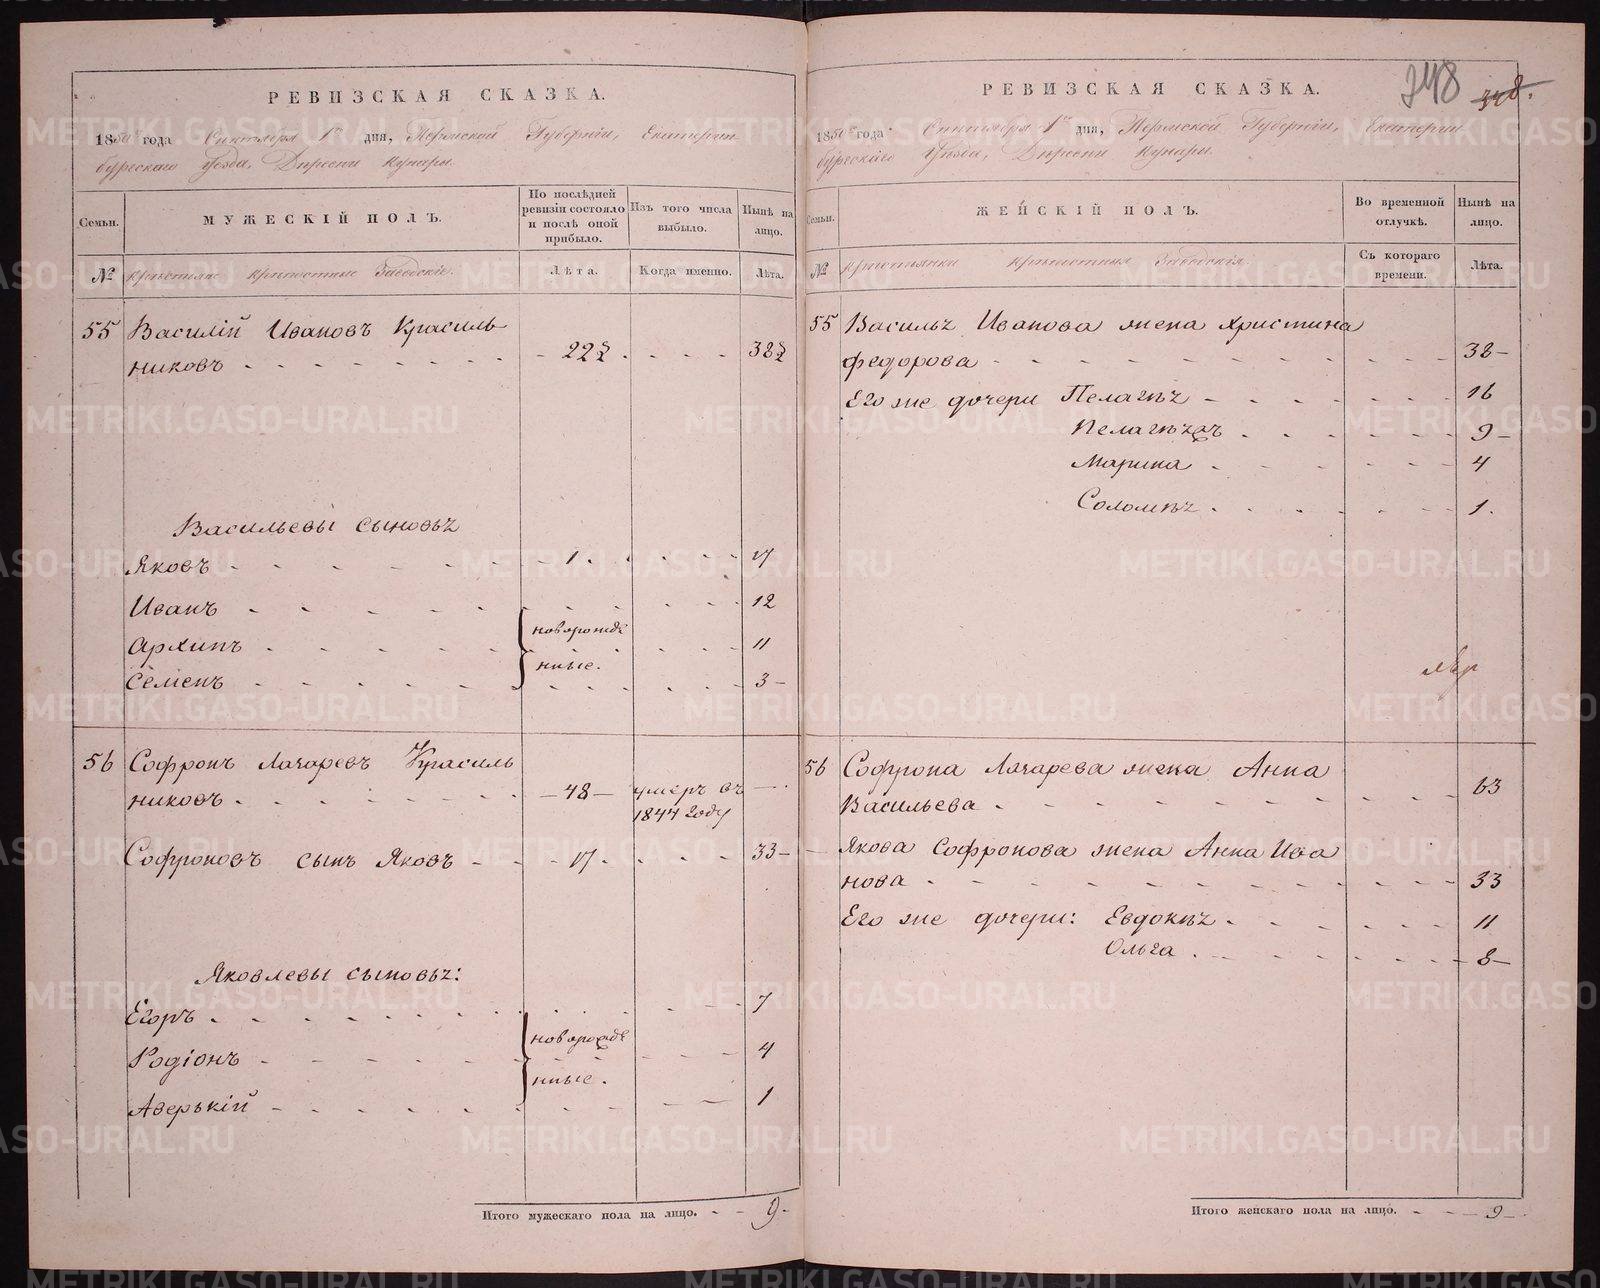 РЕВИЗСКАЯ СКАЗКА.
1850 года Сентября 1го дня, Пермской Губерніи, Екатерин
бургскаго Уѣзда, Деревни Кунары.
Семьи.
МУЖЕСКІЙ ПОЛЪ.
По послѣдней
ревизіи состояло
и послѣ оной
прибыло.
Изъ того числа
выбыло.
Нынѣ на
лицо.
№
крестьяне крѣпостные Заводскіе.
Лѣта.
Когда именно.
Лѣта.
55 Василій Ивановъ Красиль
никовъ 22½ 38½
Васильевы сыновья
Яковъ 1 17
Иванъ 12
Архипъ новорожде 11
Семенъ нные. 3
56 Софронъ Лазаревъ Красиль
никовъ 48 умеръ въ
1844 году
Софроновъ сынъ Яковъ 17 33
Яковлевы сыновья:
Егоръ 7
Родіонъ новорожде 4
нные.
Аверькій 1
Итого мужескаго пола на лицо. 9
248
РЕВИЗСКАЯ СКАЗКА.
1850 года Сентября 1го дня, Пермской Губерніи, Екатерин
бургскаго Уѣзда, Деревни Кунары.
Семьи.
ЖЕНСКІЙ ПОЛЪ.
Во временной
отлучкѣ.
Нынѣ на
лицо.
№
крестьянки крѣпостныя Заводскія.
Съ котораго
времени.
Лѣта.
55 Василья Иванова жена Христина
Федорова 38
Его же дочери Пелагѣя 16
Пелагѣя 9
Марина 4
Соломѣя 1
56 Софрона Лазарева жена Анна
Васильева 63
Якова Софронова жена Анна Ива
нова 33
Его же дочери: Евдокѣя 11
Ольга 8
Итого женскаго пола на лицо. 9
METRIKI.GASO-URAL.RU